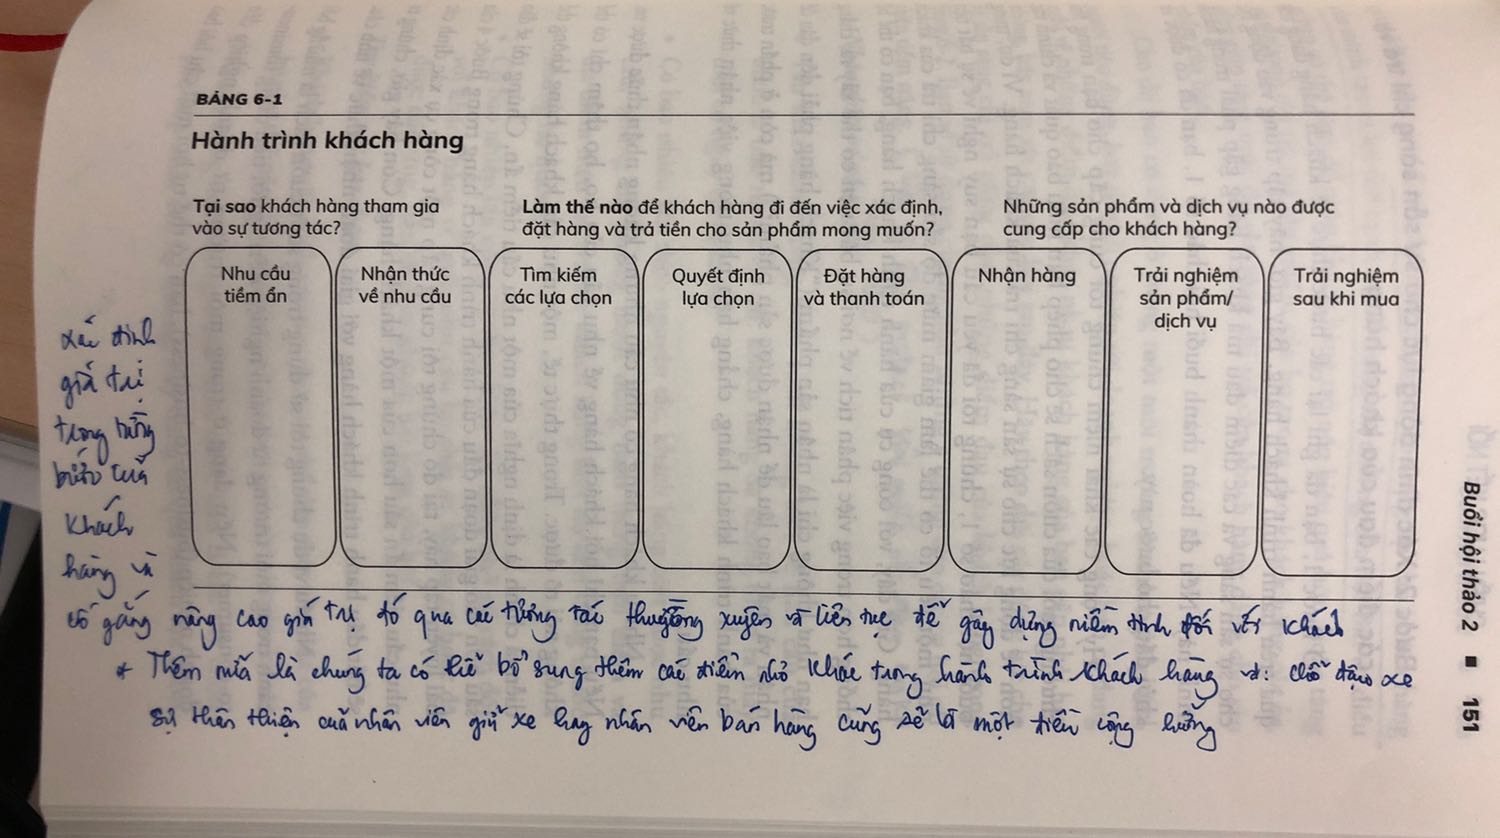 BẢNG 6-1
Hành trình khách hàng
Tại sao khách hàng tham gia
vào sự tương tác?
Làm thế nào để khách hàng đi đến việc xác định,
đặt hàng và trả tiền cho sản phẩm mong muốn?
Những sản phẩm và dịch vụ nào được
cung cấp cho khách hàng?
Nhu cầu
tiềm ẩn
Nhận thức
về nhu cầu
Tìm kiếm
các lựa chọn
Quyết định
lựa chọn
Đặt hàng
và thanh toán
Nhận hàng
Trải nghiệm
sản phẩm/
dịch vụ
Trải nghiệm
sau khi mua
xác định
giá trị
trong từng
bước của
khách
hàng và
cố gắng nâng cao giá trị đó qua các tương tác thường xuyên và liên tục để gây dựng niềm tin đối với khách
* Thêm nữa là chúng ta có thể bổ sung thêm các điểm nhỏ khác trong hành trình khách hàng vd: chỗ đậu xe
sự thân thiện của nhân viên giữ xe hay nhân viên bán hàng cũng sẽ là một điểm cộng hưởng
Buổi hội thảo 2 ■ 151